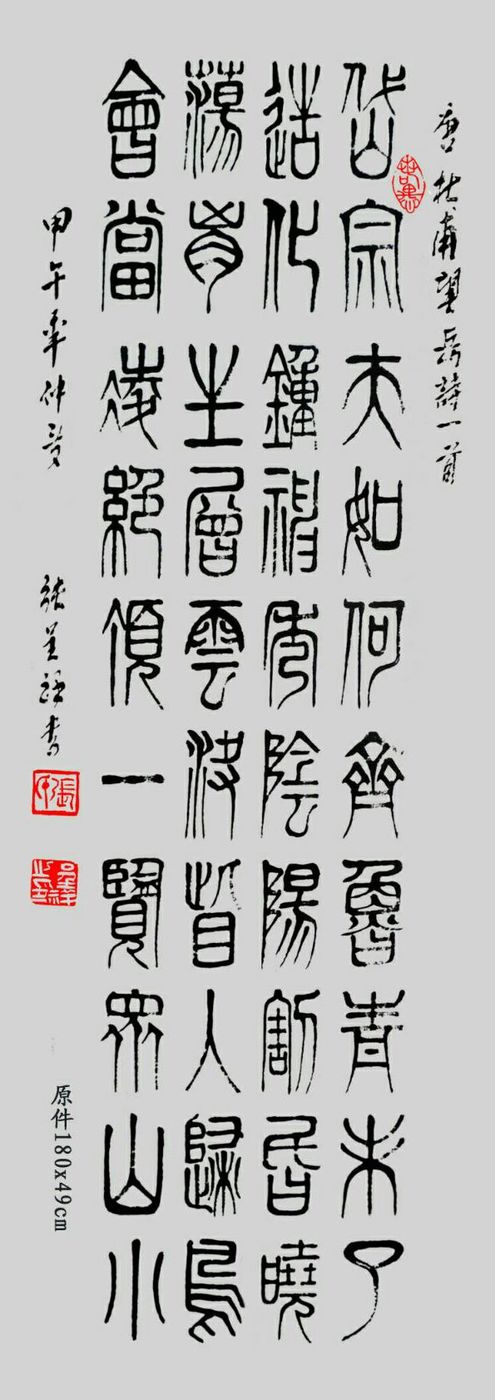 唐杜甫望岳詩一首
岱宗夫如何齊魯青未了
造化鐘神秀陰陽割昏曉
蕩胸生層雲決眥入歸鳥
會當凌絕頂一覽眾山小
甲午年仲夏
張呈書
原件180x49cm